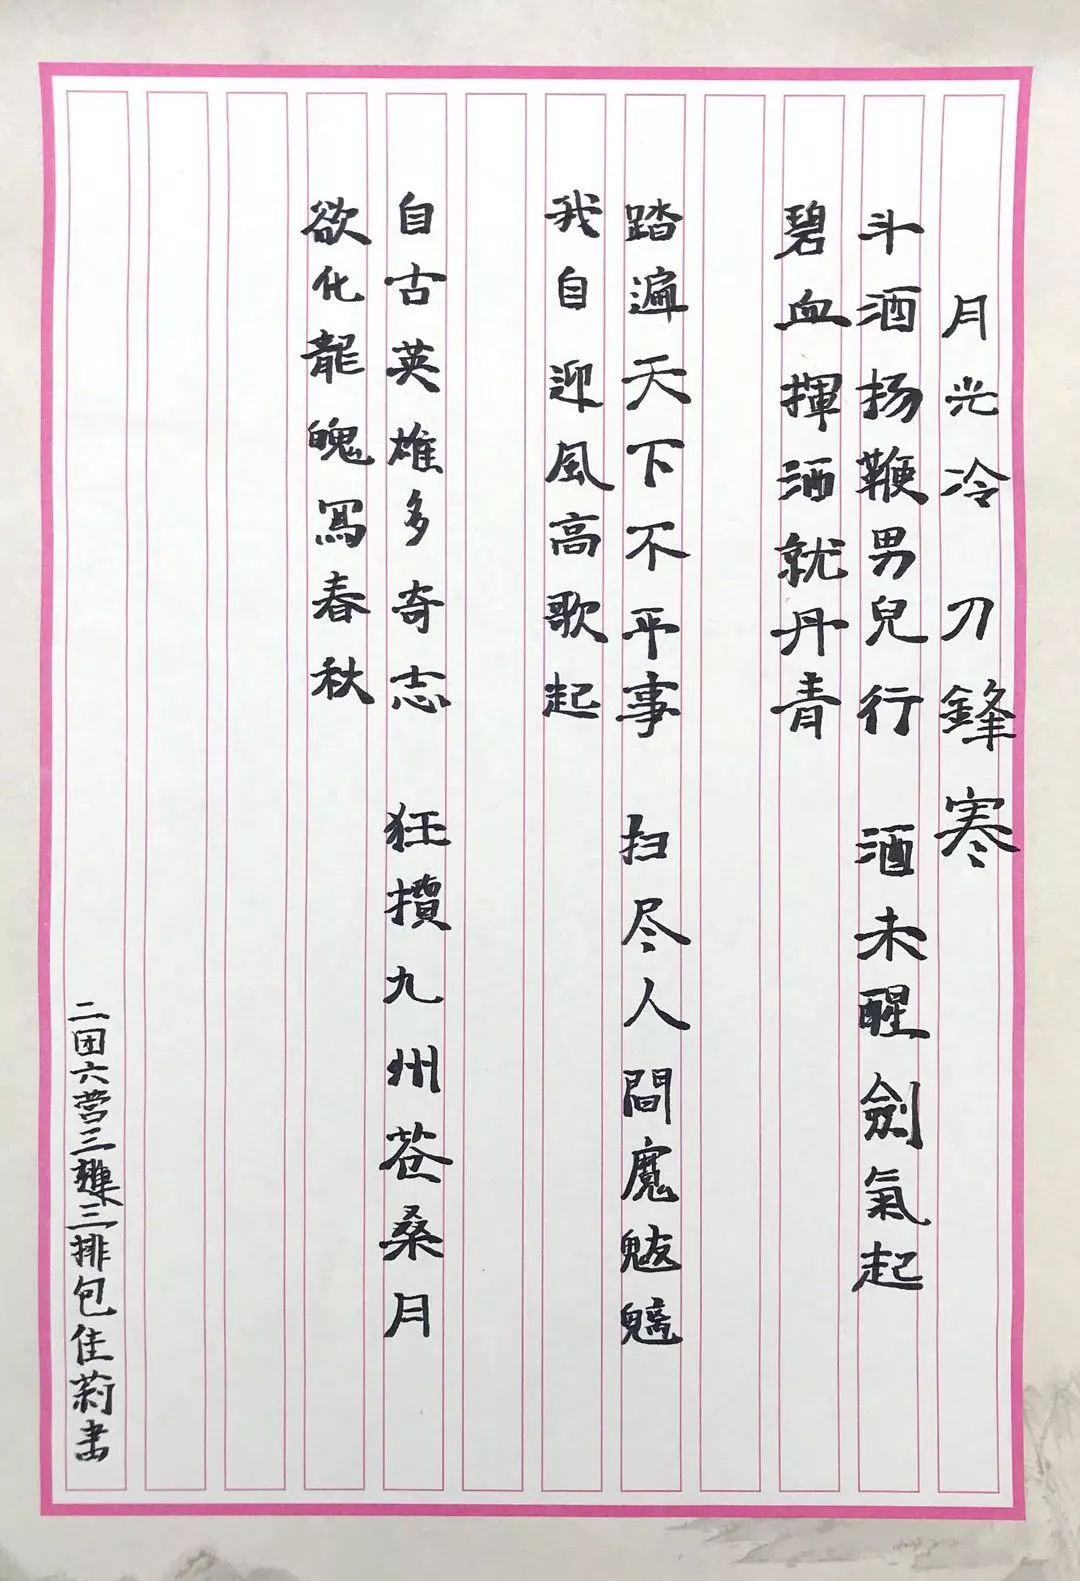 月光冷 刀鋒寒
斗酒扬鞭男兒行 酒未醒 劍氣起
碧血揮洒就丹青
踏遍天下不平事 扫尽人間魔魃魑
我自迎風高歌起
自古英雄多奇志 狂攬九州苍桑月
欲化龍魄寫春秋
二团六营三連三排包佳莉書